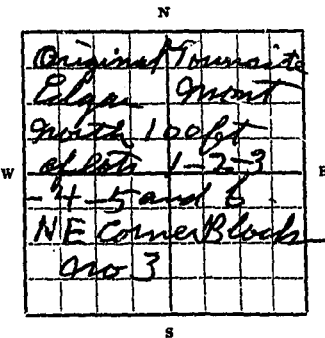 N
Original Townsite
Edgar Mont
North 100 ft
W of lots 1-2-3 E
-4-5 and 6
NE Corner Block
No 3
S